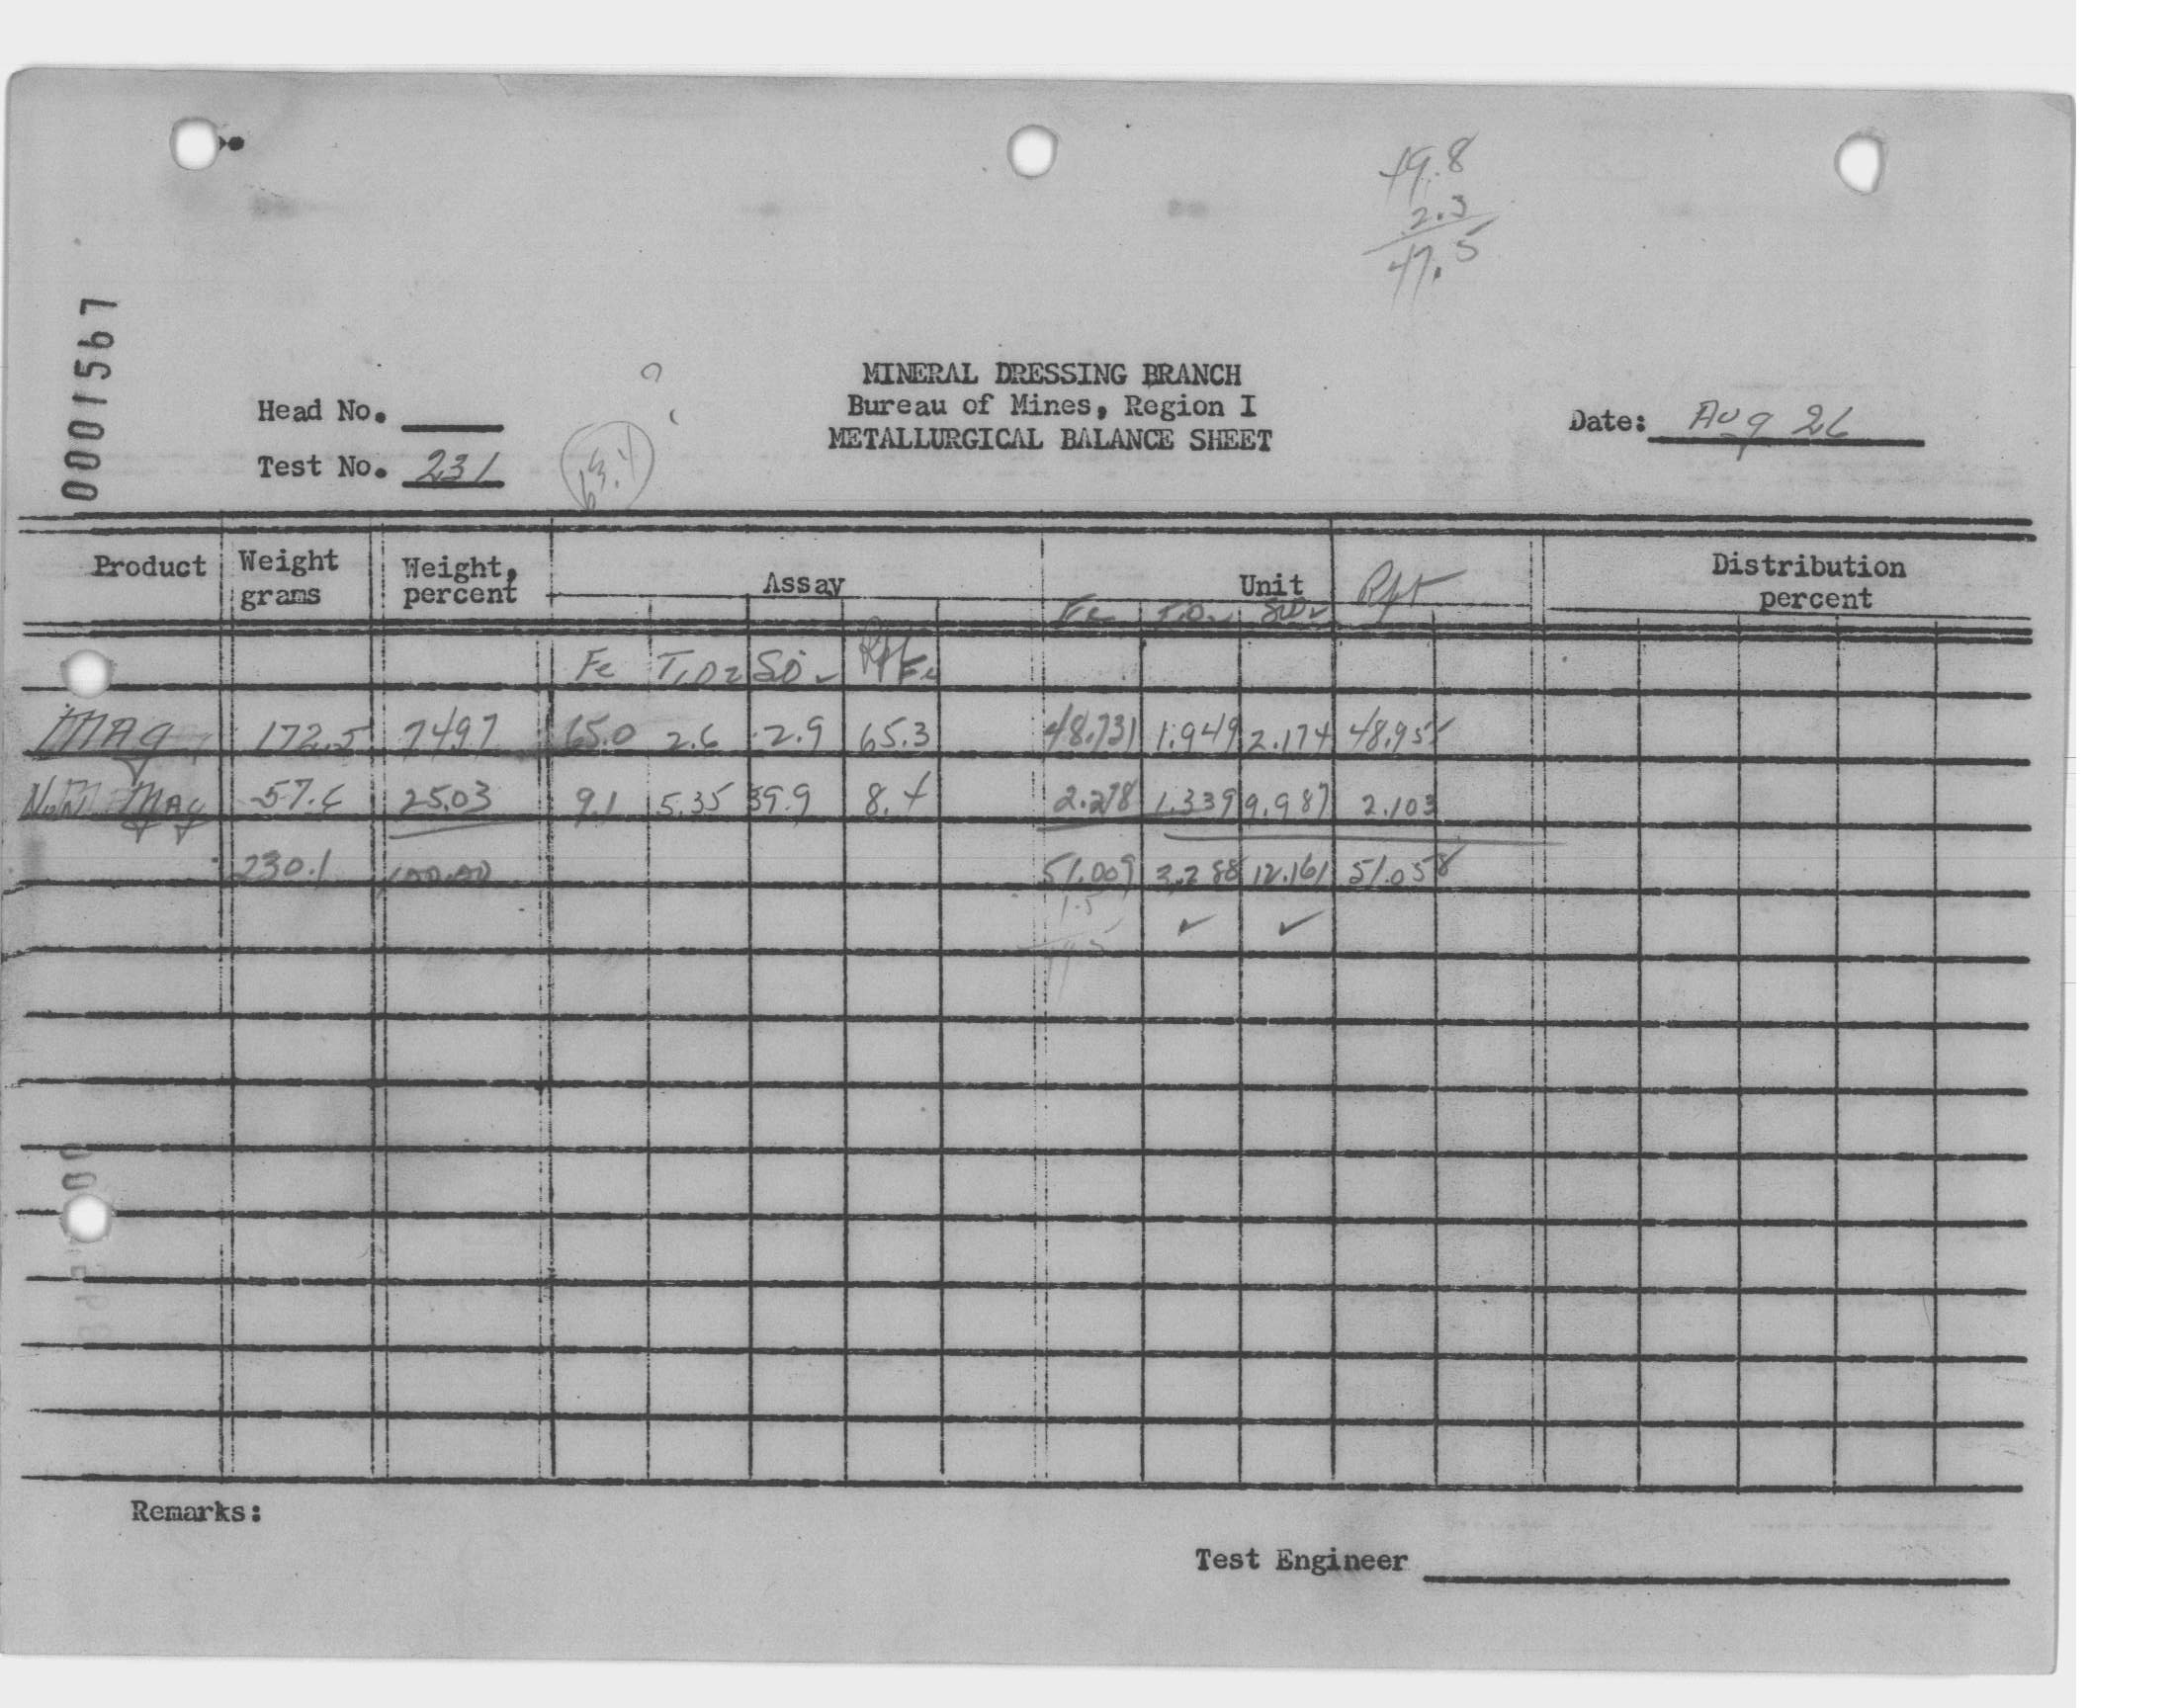 49.8
2.3
47.5
0001567
MINERAL DRESSING BRANCH
Bureau of Mines, Region I
METALLURGICAL BALANCE SHEET
Head No.
Test No. 231
63.4
Date: Aug 26
Product Weight grams Weight, percent Assay Unit Rpt Distribution percent
Fe TiO2 SiO2
Fe TiO2 SiO2 Rpt Fe
Mag 172.5 7497 65.0 2.6 2.9 65.3 48.731 1.949 2.174 48.955
Non Mag 57.6 25.03 9.1 5.35 39.9 8.4 2.278 1.339 9.987 2.103
230.1 100.00 51.009 3.288 12.161 51.058
1.5
49.5
Remarks:
Test Engineer